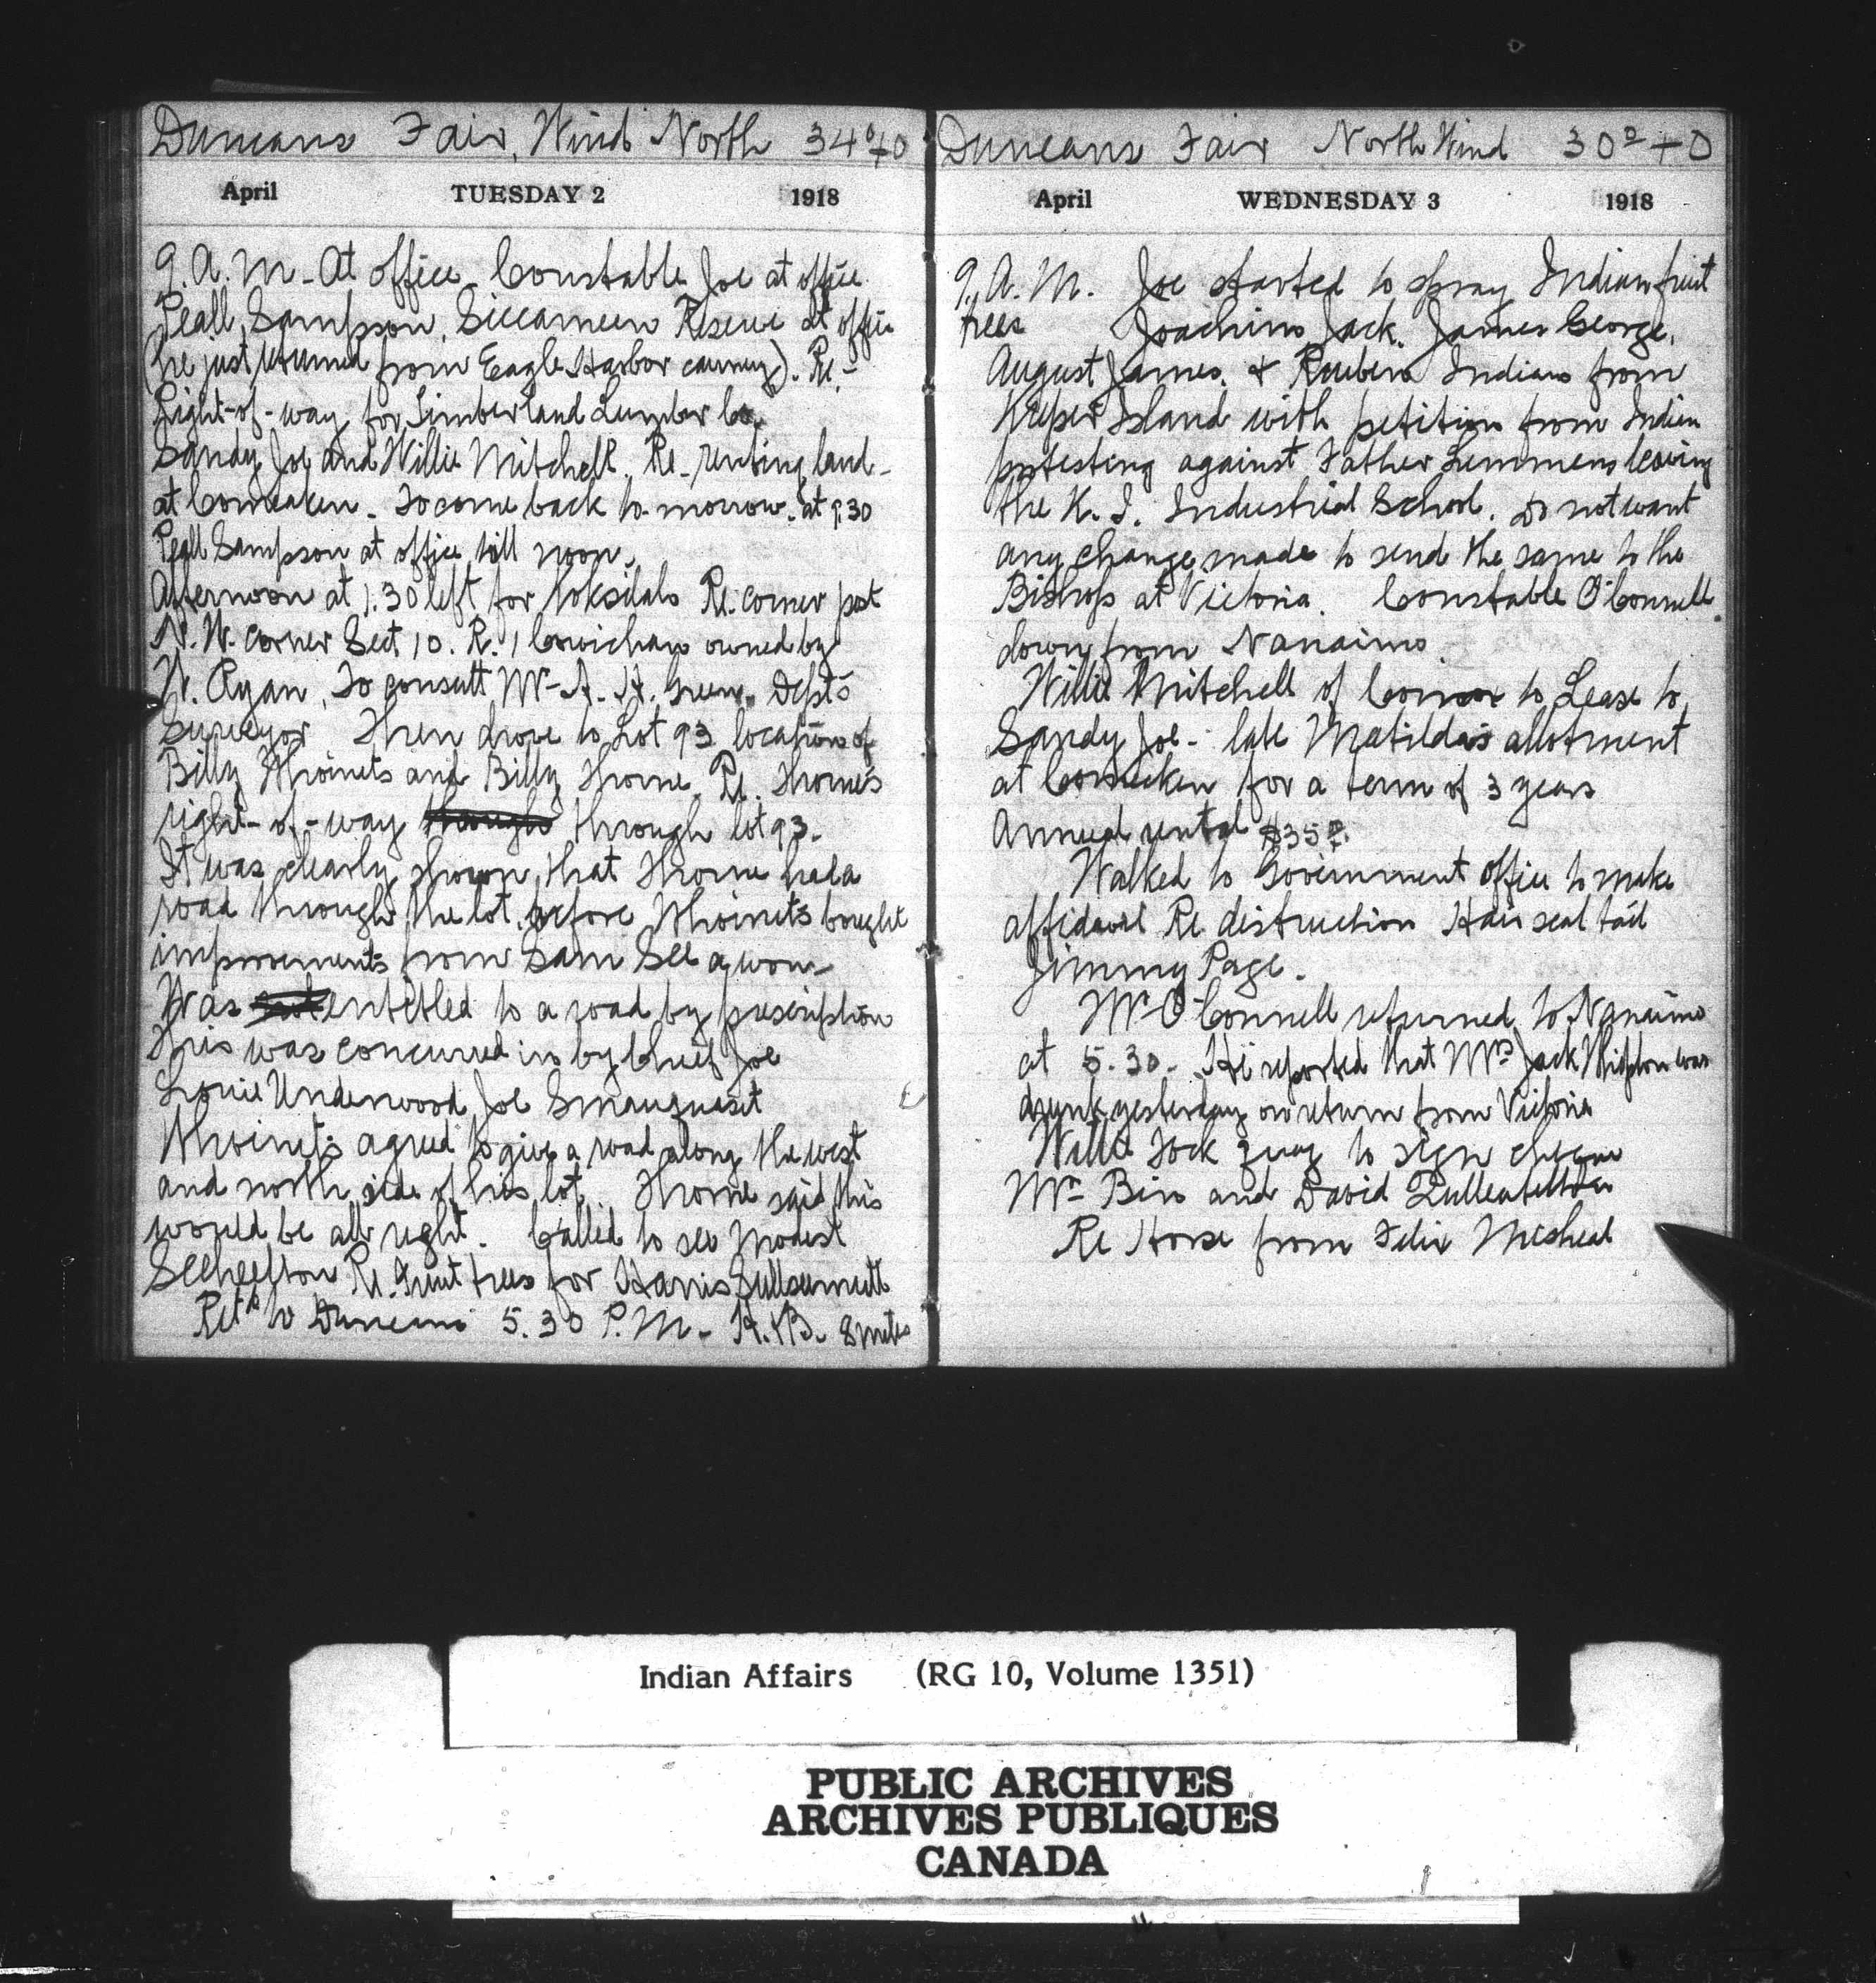 Duncans Fair, Wind North 34° +0
April TUESDAY 2 1918
9. A. M - At office - Constable Joe at office.
Peall Sampson, Siccameen Reserve at office
(he just returned from Eagle Harbor cannery). Re -
Right-of-way for Timberland Lumber Co.
Sandy Joe and Willie Mitchell. Re - renting land -
at Comeaken - To come back to morrow. at 9.30
Peall Sampson at office till noon,
Afternoon at 1.30 left for Koksilah Re. corner post
N. W. corner Sect 10. R. 1 Cowichan owned by
W. Ryan, To consult Mr A. H. Green Dept's
Surveyor Then drove to Lot 93 location of
Billy Whoinets and Billy Thorne. Re. Thorne's
right-of-way through through lot 93.
It was clearly shown that Thorne had a
road through the lot, before Whoinets bought
improvements from Sam
Was not entitled to a road by prescription
This was concurred in by Chief Joe
Louie Underwood Joe
Whoinets agreed to give a road along the west
and north side of his lot. Thorne said this
would be all right. Called to see Modest
Re. fruit trees for Harris
Retd to Duncans 5.30 P.M. - H.+B. 8 miles
Duncans Fair North Wind 30° +0
April WEDNESDAY 3 1918
9. A. M. Joe started to spray Indian fruit
trees Joachim Jack. James George,
August James. & Reuben Indians from
Kuper Island with petition from Indian
protesting against Father Lemmens leaving
the K. I. Industrial School. Do not want
any change made to send the same to the
Bishop at Victoria. Constable O'Connell
down from Nanaimo
Willie Mitchell of Comox to Lease to
Sandy Joe - late Matilda's allotment
at Comeaken for a term of 3 years
Annual rental $35
Walked to Government office to make
affidavit Re distruction Hair seal tail
Jimmy Page.
Mr O'Connell returned to Nanaimo
at 5.30. He reported that Mrs Jack was
drunk yesterday on return from Victoria
Willie to sign cheque
Mr Bin and David
Re Horse from Felix
Indian Affairs (RG 10, Volume 1351)
PUBLIC ARCHIVES
ARCHIVES PUBLIQUES
CANADA